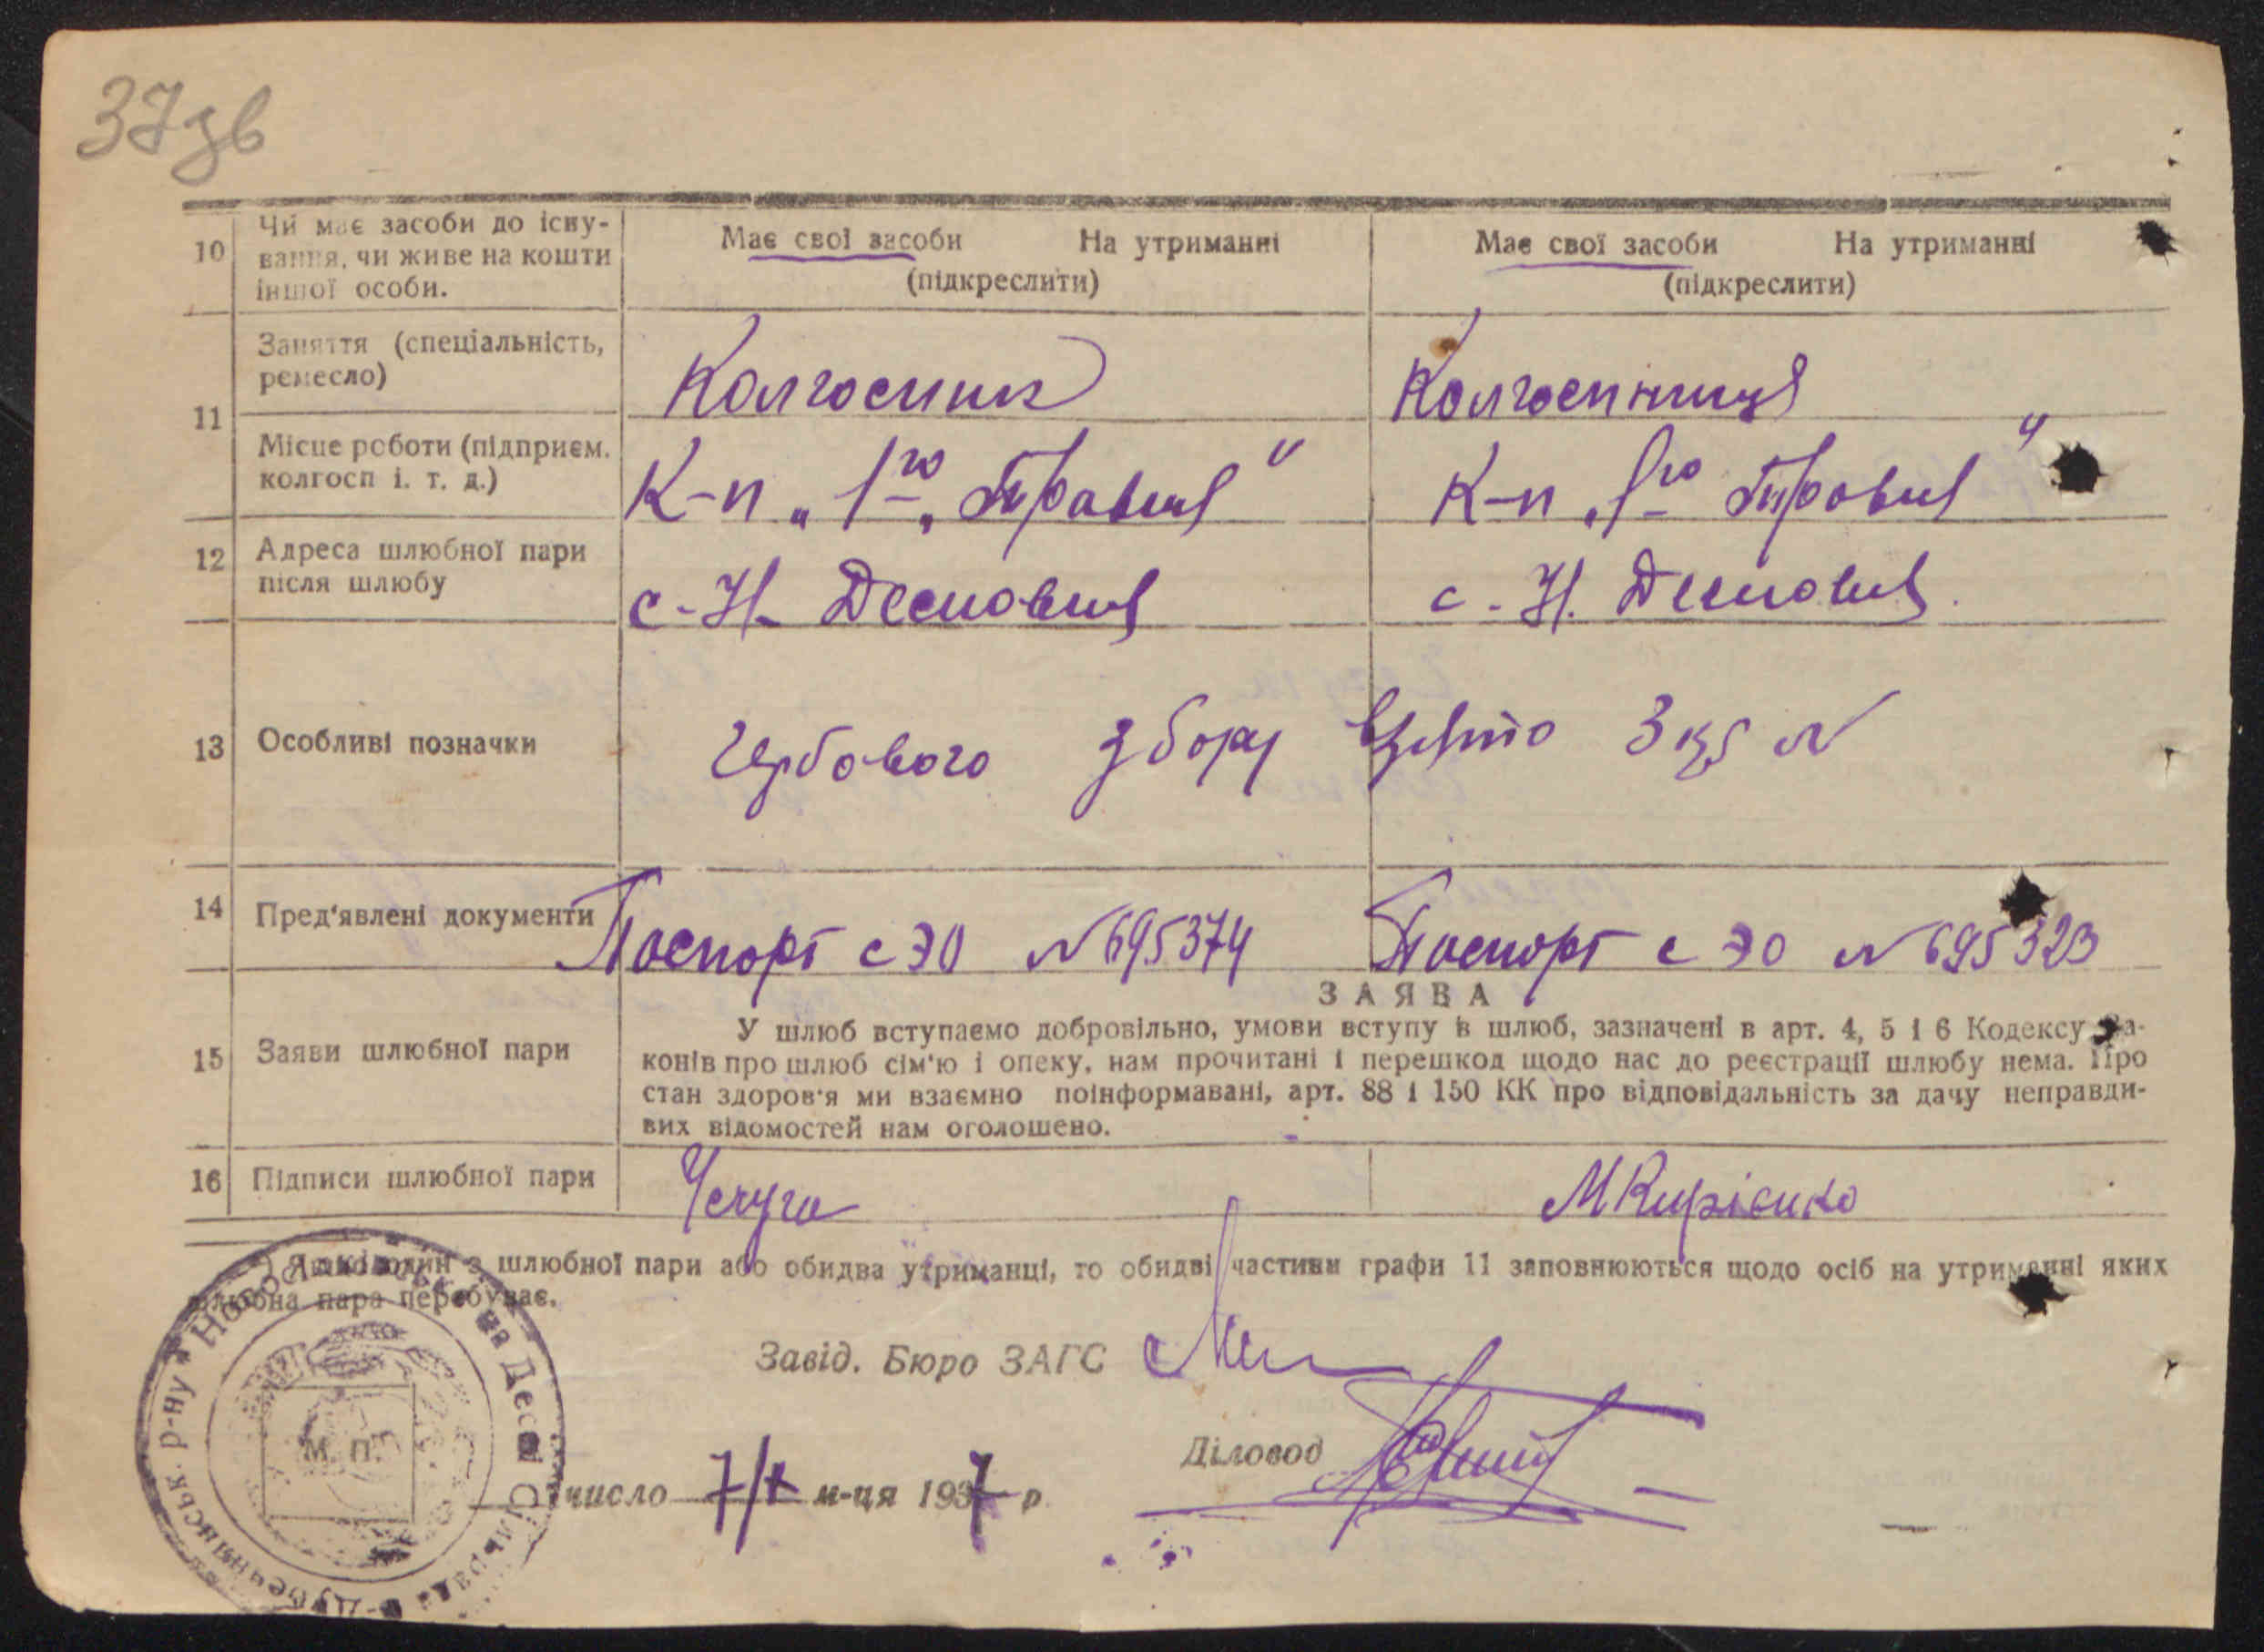 37зв
10 Чи має засоби до існу-
вання, чи живе на кошти
іншої особи.
Має свої засоби На утриманні
(підкреслити)
Має свої засоби На утриманні
(підкреслити)
11 Заняття (спеціальність,
ремесло)
Колгоспник
Колгоспниця
Місце роботи (підприєм.
колгосп і. т. д.)
К-п „1го „Травня"
К-п „1го Травня"
12 Адреса шлюбної пари
після шлюбу
с-Н. Деснovия
с. Н. Десновия
13 Особливі позначки
Гербового збору взято 3 крб
14 Пред'явлені документи
Паспорт с ЭО № 695374
Паспорт с ЭО № 695323
ЗАЯВА
15 Заяви шлюбної пари
У шлюб вступаємо добровільно, умови вступу в шлюб, зазначені в арт. 4, 5 і 6 Кодексу За-
конів про шлюб сім'ю і опеку, нам прочитані і перешкод щодо нас до реєстрації шлюбу нема. Про
стан здоров'я ми взаємно поінформавані, арт. 88 і 150 КК про відповідальність за дачу неправди-
вих відомостей нам оголошено.
16 Підписи шлюбної пари
Чечуга
М Кирієнко
Якщо один з шлюбної пари або обидва утриманці, то обидві частини графи 11 заповнюються щодо осіб на утриманні яких
шлюбна пара перебуває.
Завід. Бюро ЗАГС
Діловод
М. П.
число 7/X м-ця 1937 р.